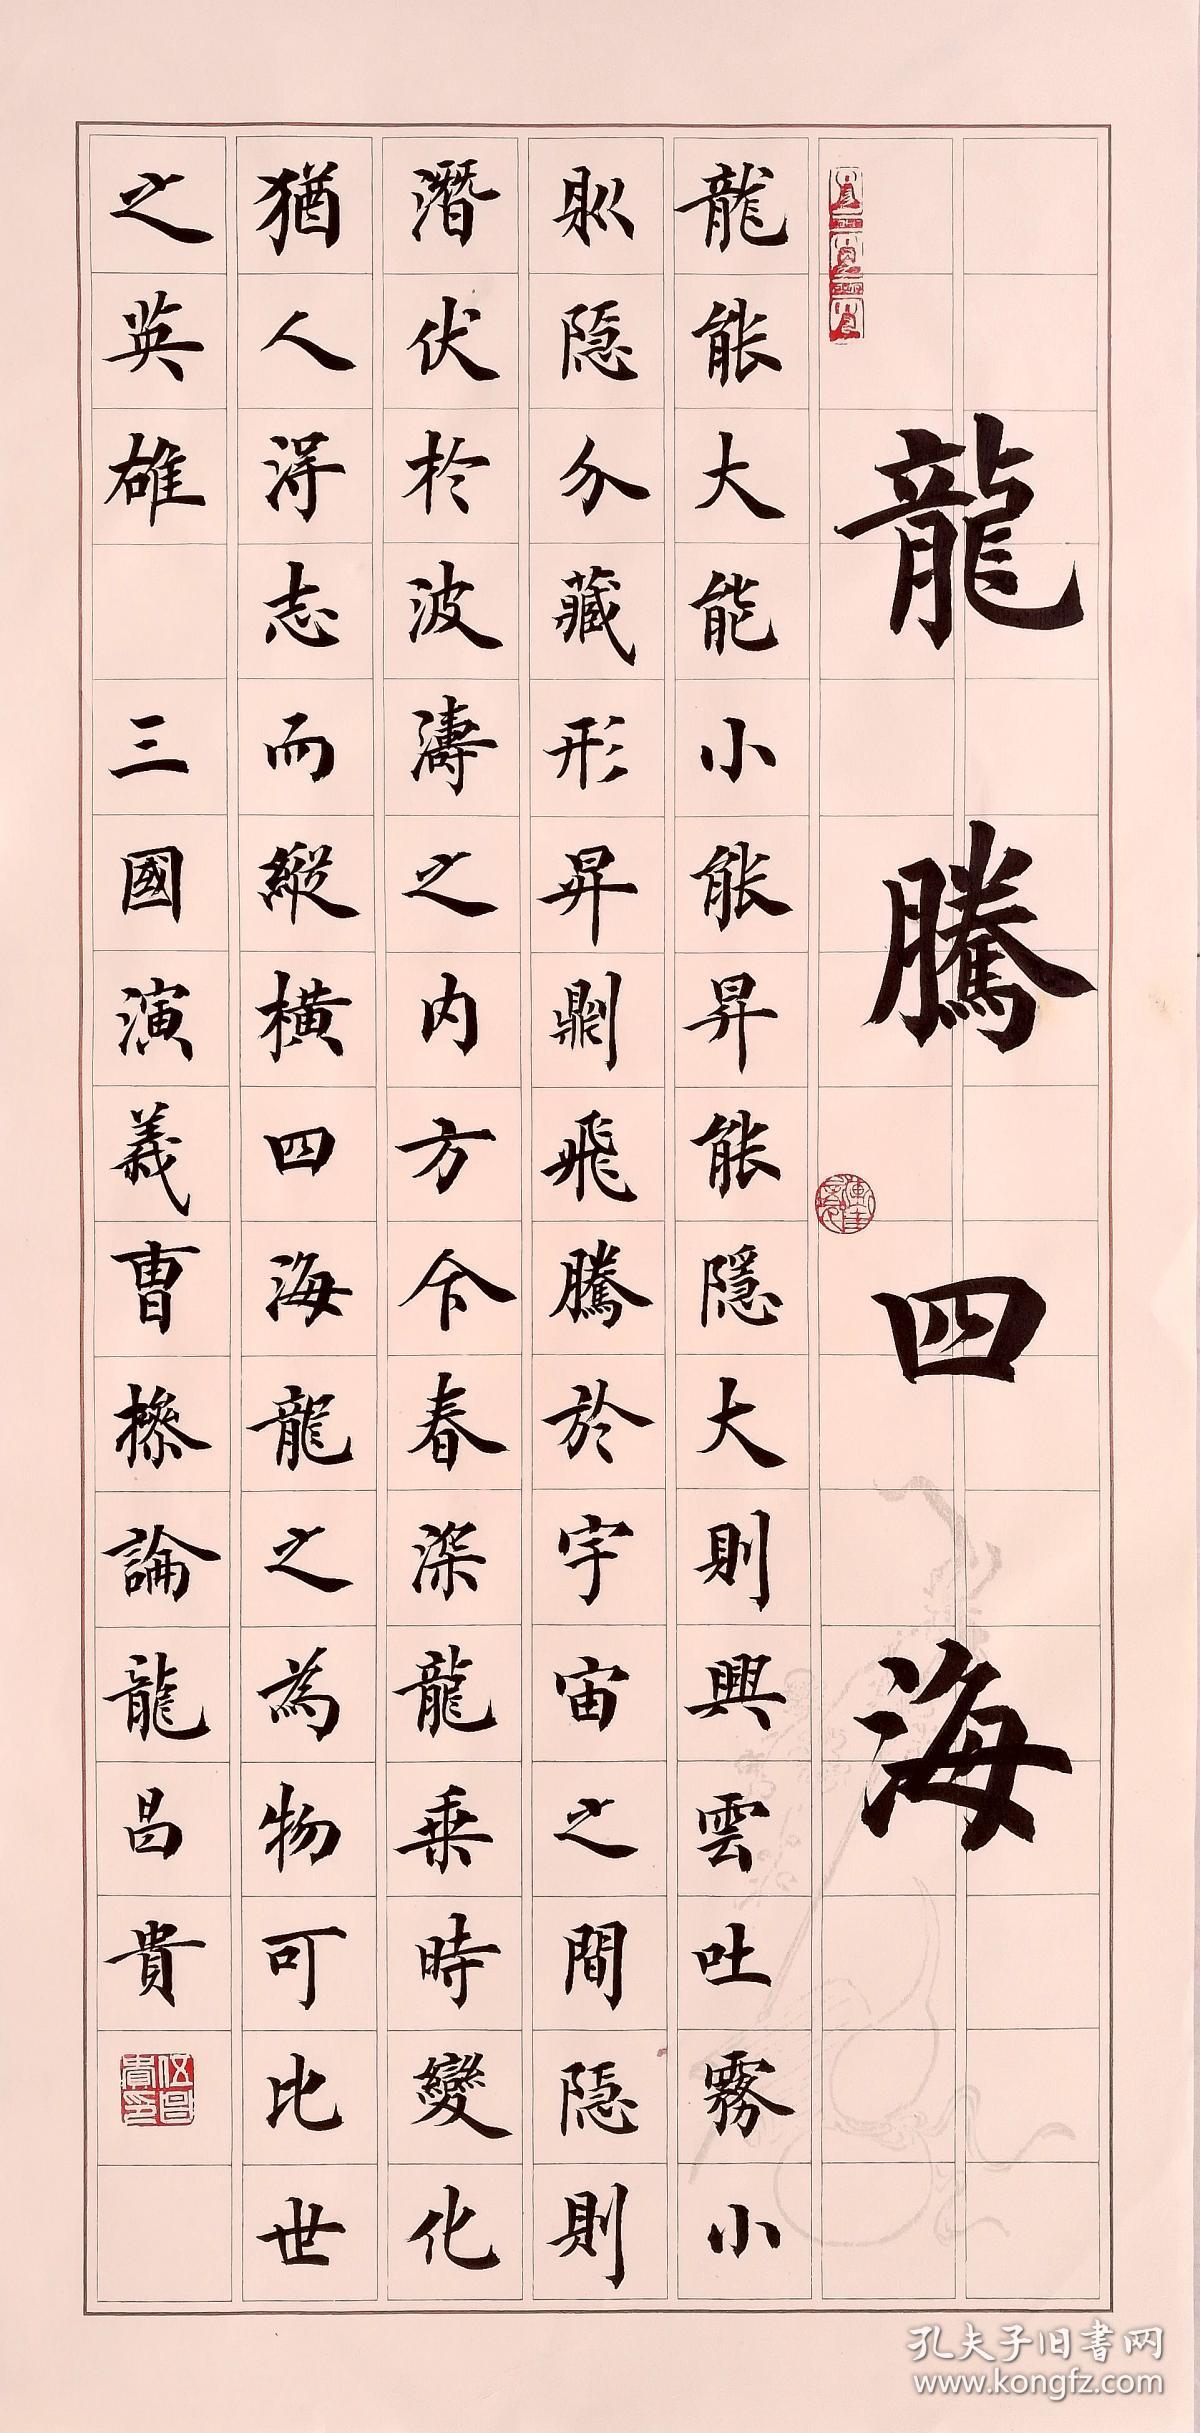 龍騰四海
龍能大能小能昇能隱大則興雲吐霧小
則隱介藏形昇則飛騰於宇宙之間隱則
潛伏於波濤之內方今春深龍乗時變化
猶人得志而縱橫四海龍之為物可比世
之英雄 三國演義曹操論龍昌貴
孔夫子旧书网
www.kongfz.com